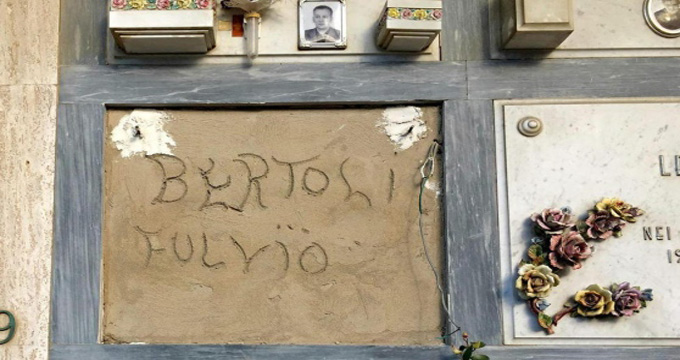 BERTOLI
FULVIO
LE
NEI
19
9